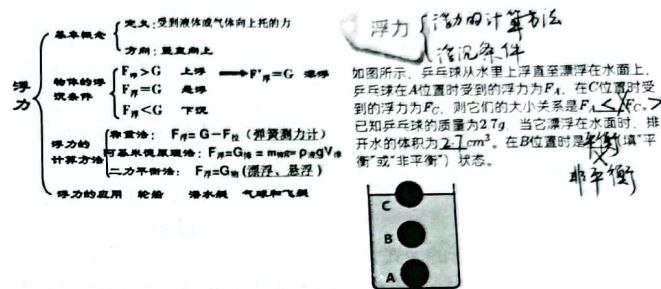 浮力
基本概念
定义:受到液体或气体向上托的力
方向:竖直向上
物体的浮沉条件
F浮>G 上浮 → F'浮=G 漂浮
F浮=G 悬浮
F浮<G 下沉
浮力的计算方法
称重法: F浮=G-F拉 (弹簧测力计)
阿基米德原理法: F浮=G排=m排g=ρ液gV排
二力平衡法: F浮=G物 (漂浮、悬浮)
浮力的应用 轮船 潜水艇 气球和飞艇
浮力
浮力的计算方法
浮沉条件
如图所示,乒乓球从水里上浮直至漂浮在水面上,
乒乓球在A位置时受到的浮力为FA,在C位置时受
到的浮力为FC,则它们的大小关系是FA < FC >
已知乒乓球的质量为2.7g,当它漂浮在水面时,排
开水的体积为2.7cm³。在B位置时是平衡(填"平
衡"或"非平衡")状态。
非平衡
C
B
A